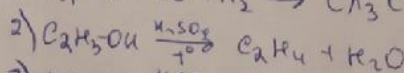 2) C₂H₅OH H₂SO₄ t° → C₂H₄ + H₂O